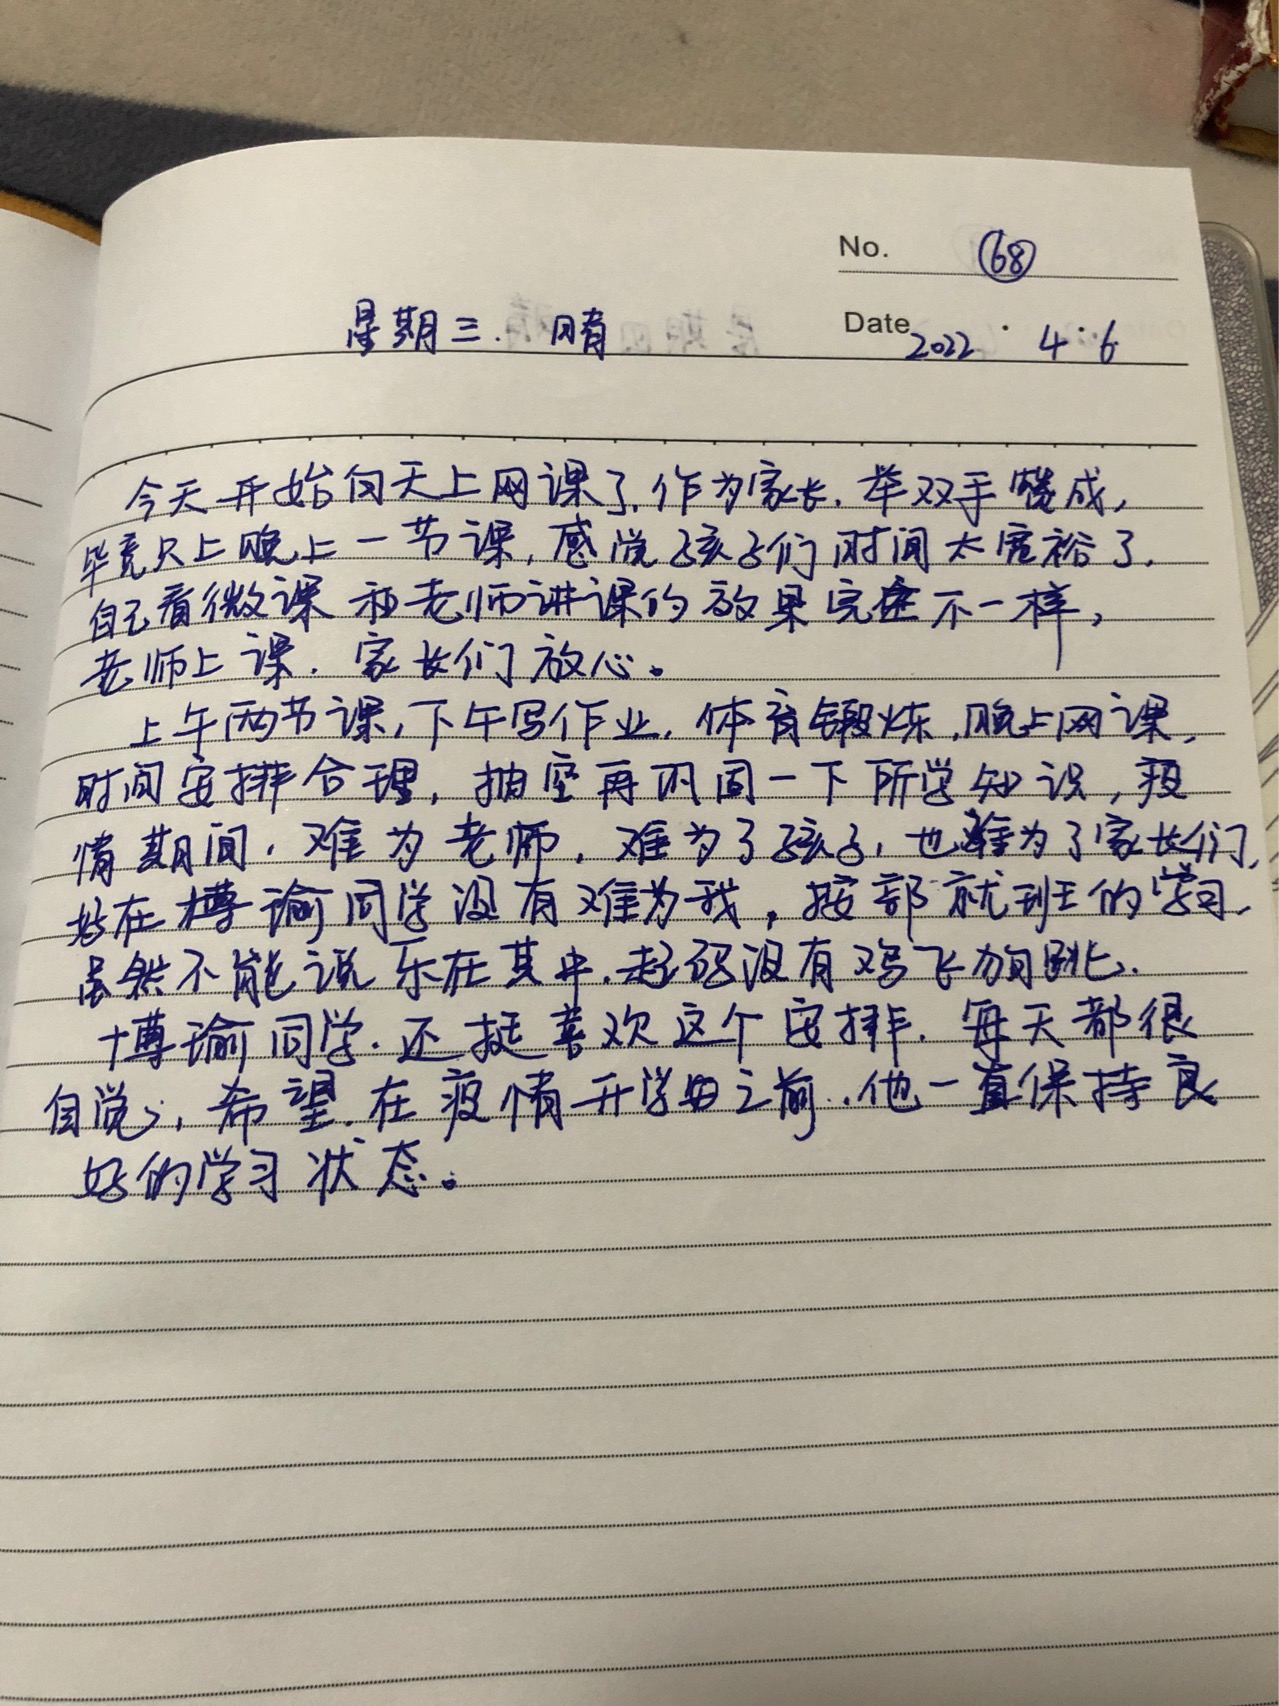 No. 68
星期三. 晴
Date 2022 . 4.6
今天开始白天上网课了,作为家长,举双手赞成,
毕竟只上晚上一节课,感觉孩子们时间太宽裕了.
自己看微课和老师讲课的效果完全不一样,
老师上课.家长们放心。
上午两节课,下午写作业,体育锻炼,晚上网课,
时间安排合理,抽空再巩固一下所学知识,疫
情期间.难为老师,难为了孩子,也难为了家长们,
好在博瑜同学没有难为我,按部就班的学习,
虽然不能说乐在其中,起码没有鸡飞狗跳.
博瑜同学.还挺喜欢这个安排.每天都很
自觉,希望.在疫情开学之前.他一直保持良
好的学习状态。